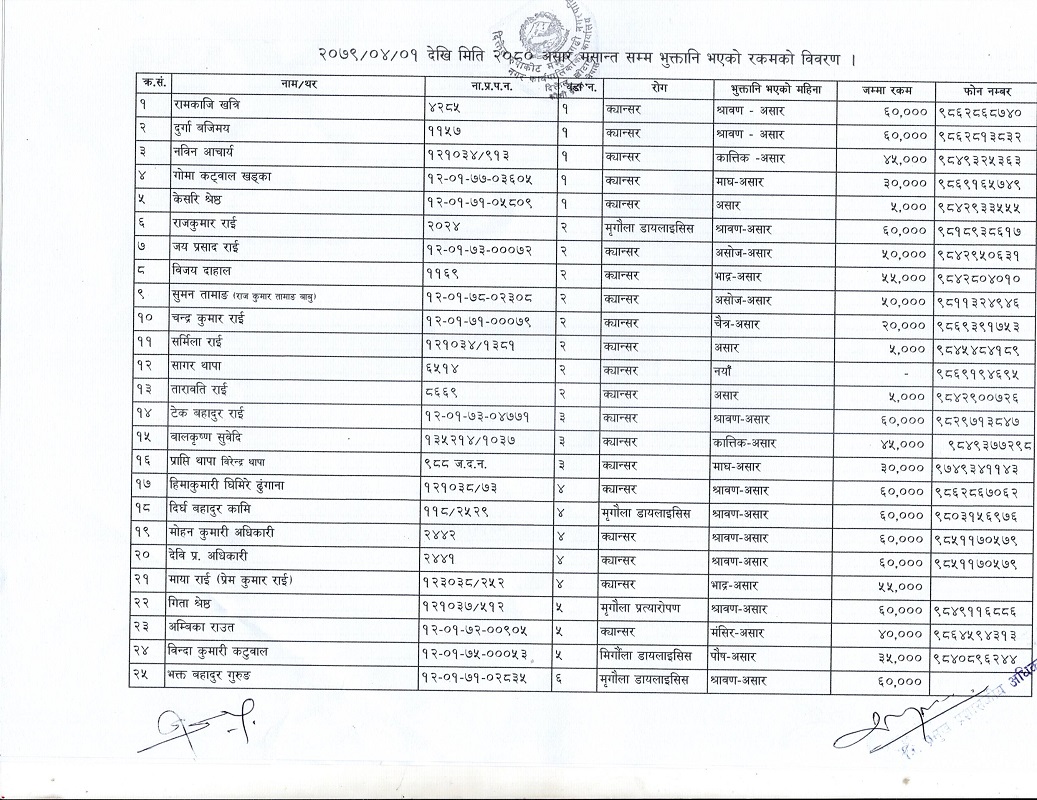 २०७९/०४/०१ देखि मिति २०८० असार मसान्त सम्म भुक्तानि भएको रकमको विवरण ।
क्र.सं. नाम/थर ना.प्र.प.न. वडा न. रोग भुक्तानि भएको महिना जम्मा रकम फोन नम्बर
१ रामकाजि खत्रि ४२८५ १ क्यान्सर श्रावण - असार ६०,००० ९८६२८६८७४०
२ दुर्गा बजिमय ११५७ १ क्यान्सर श्रावण - असार ६०,००० ९८६२८१३८३२
३ नविन आचार्य १२१०३४/९१३ १ क्यान्सर कात्तिक -असार ४५,००० ९८४९३२५३६३
४ गोमा कट्वाल खड्का १२-०१-७७-०३६०५ १ क्यान्सर माघ-असार ३०,००० ९८६९१६५७४९
५ केसरि श्रेष्ठ १२-०१-७१-०५८०९ १ क्यान्सर असार ५,००० ९८४२९३३५५५
६ राजकुमार राई २०२४ २ मृगौला डायलाइसिस श्रावण-असार ६०,००० ९८१८९३८६१७
७ जय प्रसाद राई १२-०१-७३-०००७२ २ क्यान्सर असोज-असार ५०,००० ९८४२९५०६३१
८ विजय दाहाल ११६९ २ क्यान्सर भाद्र-असार ५५,००० ९८४२८०४०१०
९ सुमन तामाङ (राज कुमार तामाङ बाबु) १२-०१-७८-०२३०८ २ क्यान्सर असोज-असार ५०,००० ९८११३२४९४६
१० चन्द्र कुमार राई १२-०१-७१-०००७९ २ क्यान्सर चैत्र-असार २०,००० ९८६९३९१७५३
११ सर्मिला राई १२१०३४/१३८१ २ क्यान्सर असार ५,००० ९८४५४८४१८९
१२ सागर थापा ६५१४ २ क्यान्सर नयाँ - ९८६९१९४६९५
१३ तारावति राई ८६६९ २ क्यान्सर असार ५,००० ९८४२९००७२६
१४ टेक वहादुर राई १२-०१-७३-०४७७१ ३ क्यान्सर श्रावण-असार ६०,००० ९८२९७१३८४७
१५ बालकृष्ण सुवेदि १३५२१४/१०३७ ३ क्यान्सर कात्तिक-असार ४५,००० ९८४९३७७२९८
१६ प्राप्ति थापा बिरेन्द्र थापा ९८८ ज.द.न. ३ क्यान्सर माघ-असार ३०,००० ९७४९३४११४३
१७ हिमाकुमारी घिमिरे ढुंगाना १२१०३८/७३ ४ क्यान्सर श्रावण-असार ६०,००० ९८६२८६७०६२
१८ दिर्घ वहादुर कामि ११८/२५२९ ४ मृगौला डायलाइसिस श्रावण-असार ६०,००० ९८०३१५६९७६
१९ मोहन कुमारी अधिकारी २४४२ ४ क्यान्सर श्रावण-असार ६०,००० ९८५११७०५७९
२० देवि प्र. अधिकारी २४४१ ४ क्यान्सर श्रावण-असार ६०,००० ९८५११७०५७९
२१ माया राई (प्रेम कुमार राई) १२३०३८/२५२ ४ क्यान्सर भाद्र-असार ५५,०००
२२ गिता श्रेष्ठ १२१०३७/५१२ ५ मृगौला प्रत्यारोपण श्रावण-असार ६०,००० ९८४९११६८८६
२३ अम्बिका राउत १२-०१-७२-००९०५ ५ क्यान्सर मंसिर-असार ४०,००० ९८६४५९४३१३
२४ विन्दा कुमारी कटुवाल १२-०१-७५-०००५३ ५ मिर्गौला डायलाइसिस पौष-असार ३५,००० ९८४०८९६२४४
२५ भक्त वहादुर गुरुङ १२-०१-७१-०२८३५ ६ मृगौला डायलाइसिस श्रावण-असार ६०,०००